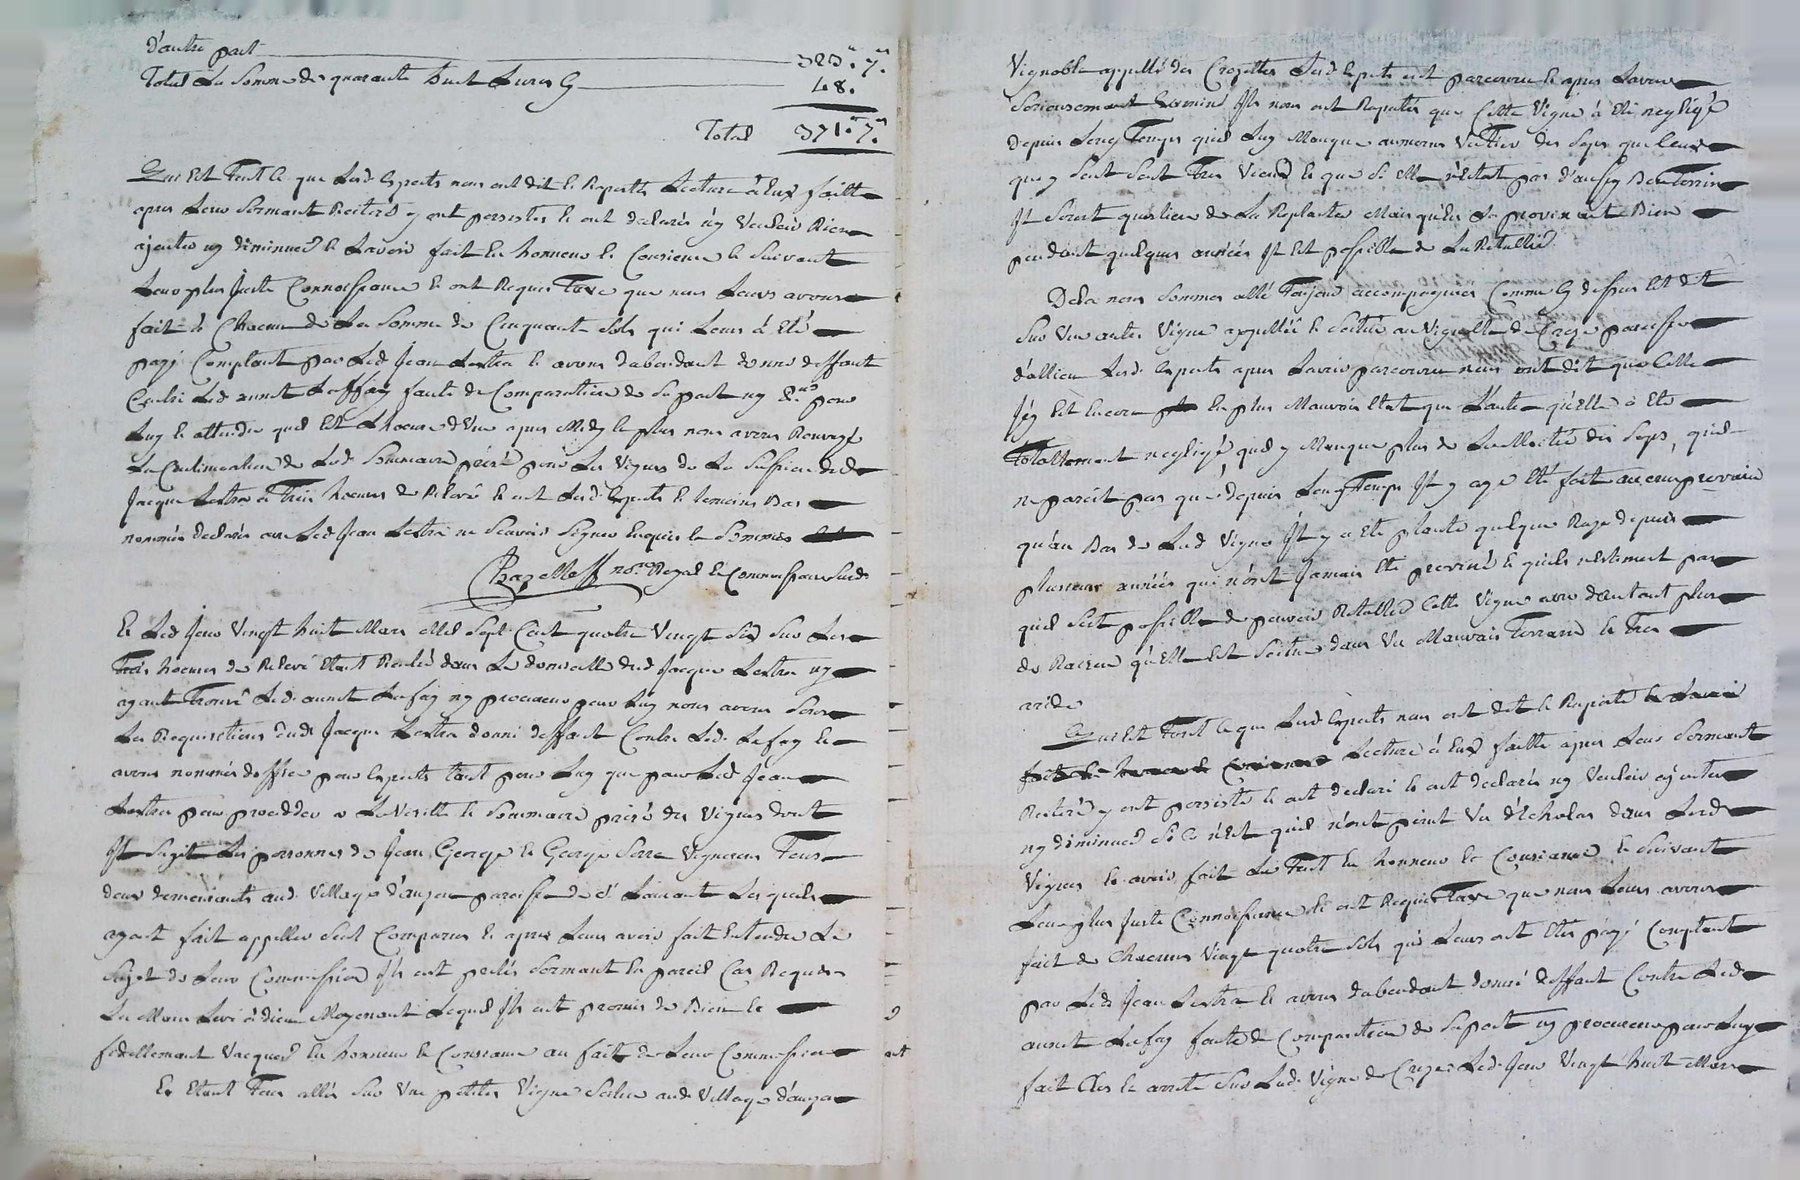 D'autre part 323ᵗᵗ. 7ˢ.
Total La somme de quarante huit Livres Cy 48.
Total 371ᵗᵗ. 7ˢ.
Qui est Tout ce que Lesd. Experts nous ont dit et Raporté Lecture à Eux faitte
apres Leur serment Reiteré y ont persistés et ont declarés n'y Vouloir Rien
ajouter ny diminuer et Lavoir fait En honneur et Consience et suivant
Leur plus Juste Connoissance et ont Requis Taxe que nous Leurs avons
fait à Chacun de La somme de Cinquante sols qui Leurs à Eté
payé Comptant par Led. Jean Lestra et avons dabondant donné deffaut
Contre Led. annet Laffay faute de Comparution de sa part ny pour
Luy et attendu quil Est Lheure d'une apres Midy et plus nous avons Renvoyé
La Continuation de Lad. Sommaire prisée pour Les Vignes de La succession dud.
Jacque Lestra à Trois heures de Relevé et ont Lesd. Experts et temoins Bas
nommés declarés avec Led. Jean Lestra ne Scavoir Signer Enquis et Sommés
Chazelle no.re Royal et Commissaire Susd.
Et Led. Jour Vingt huit Mars Mil Sept Cent quatre Vingt six sur Les
Trois heures de Relevé Etant Rendu dans Le domicille dud. Jacque Lestra n'y
ayant Trouvé Led. annet Lafay ny procureur pour Luy nous avons sous
Les Requisitions dud. Jacque Lestra donné deffaut Contre Led. Lafay et
avons nommés doffice pour Experts tant pour Luy que pour Led. Jean
Lestra pour proceder a La Visitte et Sommaire prisé des Vignes dont
Il Sagit Les personnes de Jean George et George Serre Vignerons Tous
deux demeurants aud. Village d'anzon paroisse de Lesquels
ayant fait appeller sont Comparus et apres Leurs avoir fait Entendre Le
Sujet de Leur Commission Ils ont pretés serment En pareil Cas Requis
La Main Levé à dieu Moyenant Lequel Ils ont promis de Bien et
fidellement Vacquer En honneur et Consiance au fait de Leur Commission
Et Etant Tous allés sur Une petite Vigne Scitue aud. Village d'anzon
Vignoble appellé des Crozettes Lesd. Experts ont parcouru et apres Lavoir
Serieusement Examiné Ils nous ont Raportés que Cette Vigne à Eté negligé
depuis Long Temps quil Luy Manque au moins Un Tier des Seps que Ceux
qui y sont sont Tres Vieux et que si Elle n'Etoit pas d'aussy Bon Terrin
Il Seroit question de La Replanter Mais qu'En La provinant Bien
pendant quelques années Il Est possible de La Retablir.
Dela nous sommes allé Toujour accompagnés Comme Cy dessus Est dit
sur Une autre Vigne appellée et scitué au Vignoble de Croze paroisse
d'allieu Lesd. Experts apres Lavoir parcouru nous ont dit que Celle
Icy Est Encore En plus Mauvais Etat que L'autre qu'elle à Eté
Totallement negligé, quil y Manque plus de La Moitié des Seps, quil
ne paroit pas que depuis Long Temps Il y aye Eté fait aucun provain
qu'au Bas de Lad. Vigne Il y a Eté planté quelque Raze depuis
plusieurs années qui n'ont Jamais Eté proviné et quils n'estiment pas
quil soit possible de pouvoir Retablir Cette Vigne avec dautant plus
de Raison qu'Elle Est Scitué dans Un Mauvais Terrain et Tres
aride
Qui Est Tout Ce que Lesd. Experts nous ont dit et Raporté et Lavoir
fait En honneur et Consience Lecture à Eux faitte apres Leur serment
Reiteré y ont persisté et ont declaré et ont declarés n'y Vouloir ajouter
ny diminuer si Ce n'Est quil n'ont point Vu d'Echalas dans Lesd.
Vignes et avoir fait Le Tout En honneur et Consiance et Suivant
Leur plus Juste Connoissance Et ont Requis Taxe que nous Leurs avons
fait de Chacuns Vingt quatre sols qui Leurs ont Eté payé Comptant
par Led. Jean Lestra et avons dabondant donné deffaut Contre Led.
annet Lafay faute de Comparution de sa part ny procureur pour Luy
fait Clos et arreté Sur Lad. Vigne de Croze Led. Jour Vingt huit Mars